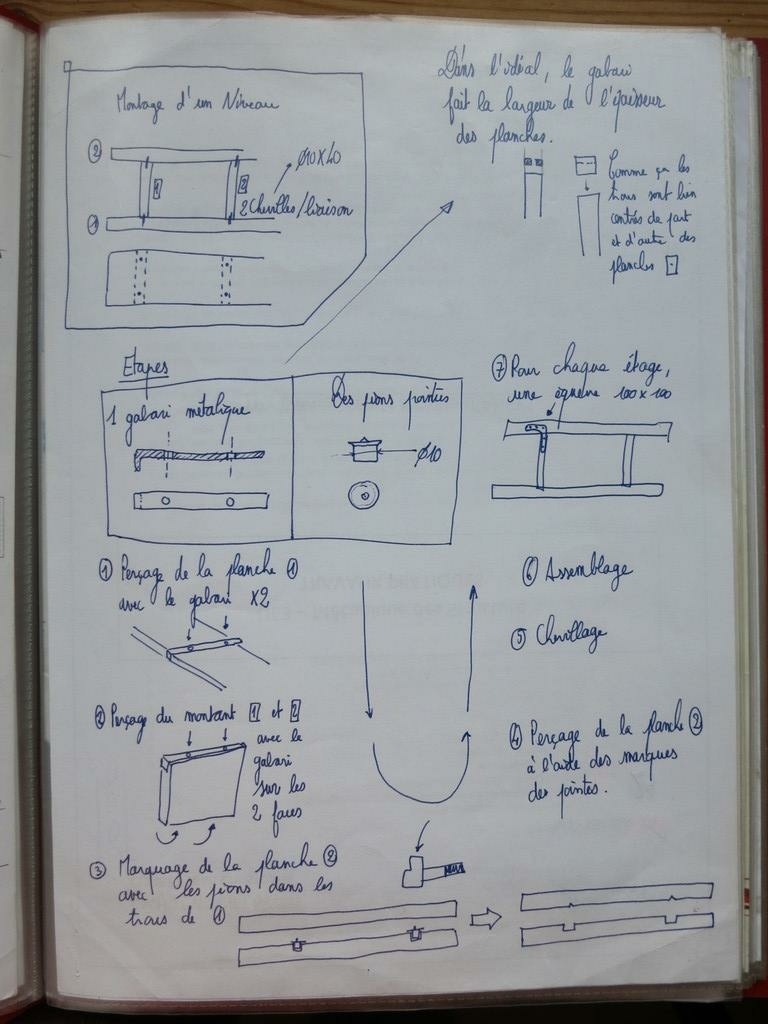 Montage d'un Niveau
②
Ø10x40
1
2
2 Chevilles/liaison
①
Dans l'idéal, le gabari
fait la largeur de l'épaisseur
des planches.
Comme ça les
trous sont bien
centrés de part
et d'autre des
planches
Etapes
1 gabari métalique
Des pions pointés
Ø10
⑦ Pour chaque étage,
une équerre 100x100
① Perçage de la planche ①
avec le gabari x2
② Perçage du montant 1 et 2
avec le
gabari
sur les
2 faces
③ Marquage de la planche ②
avec les pions dans les
trous de ①
④ Perçage de la planche ②
à l'aide des marques
des pointes.
⑤ Chevillage
⑥ Assemblage